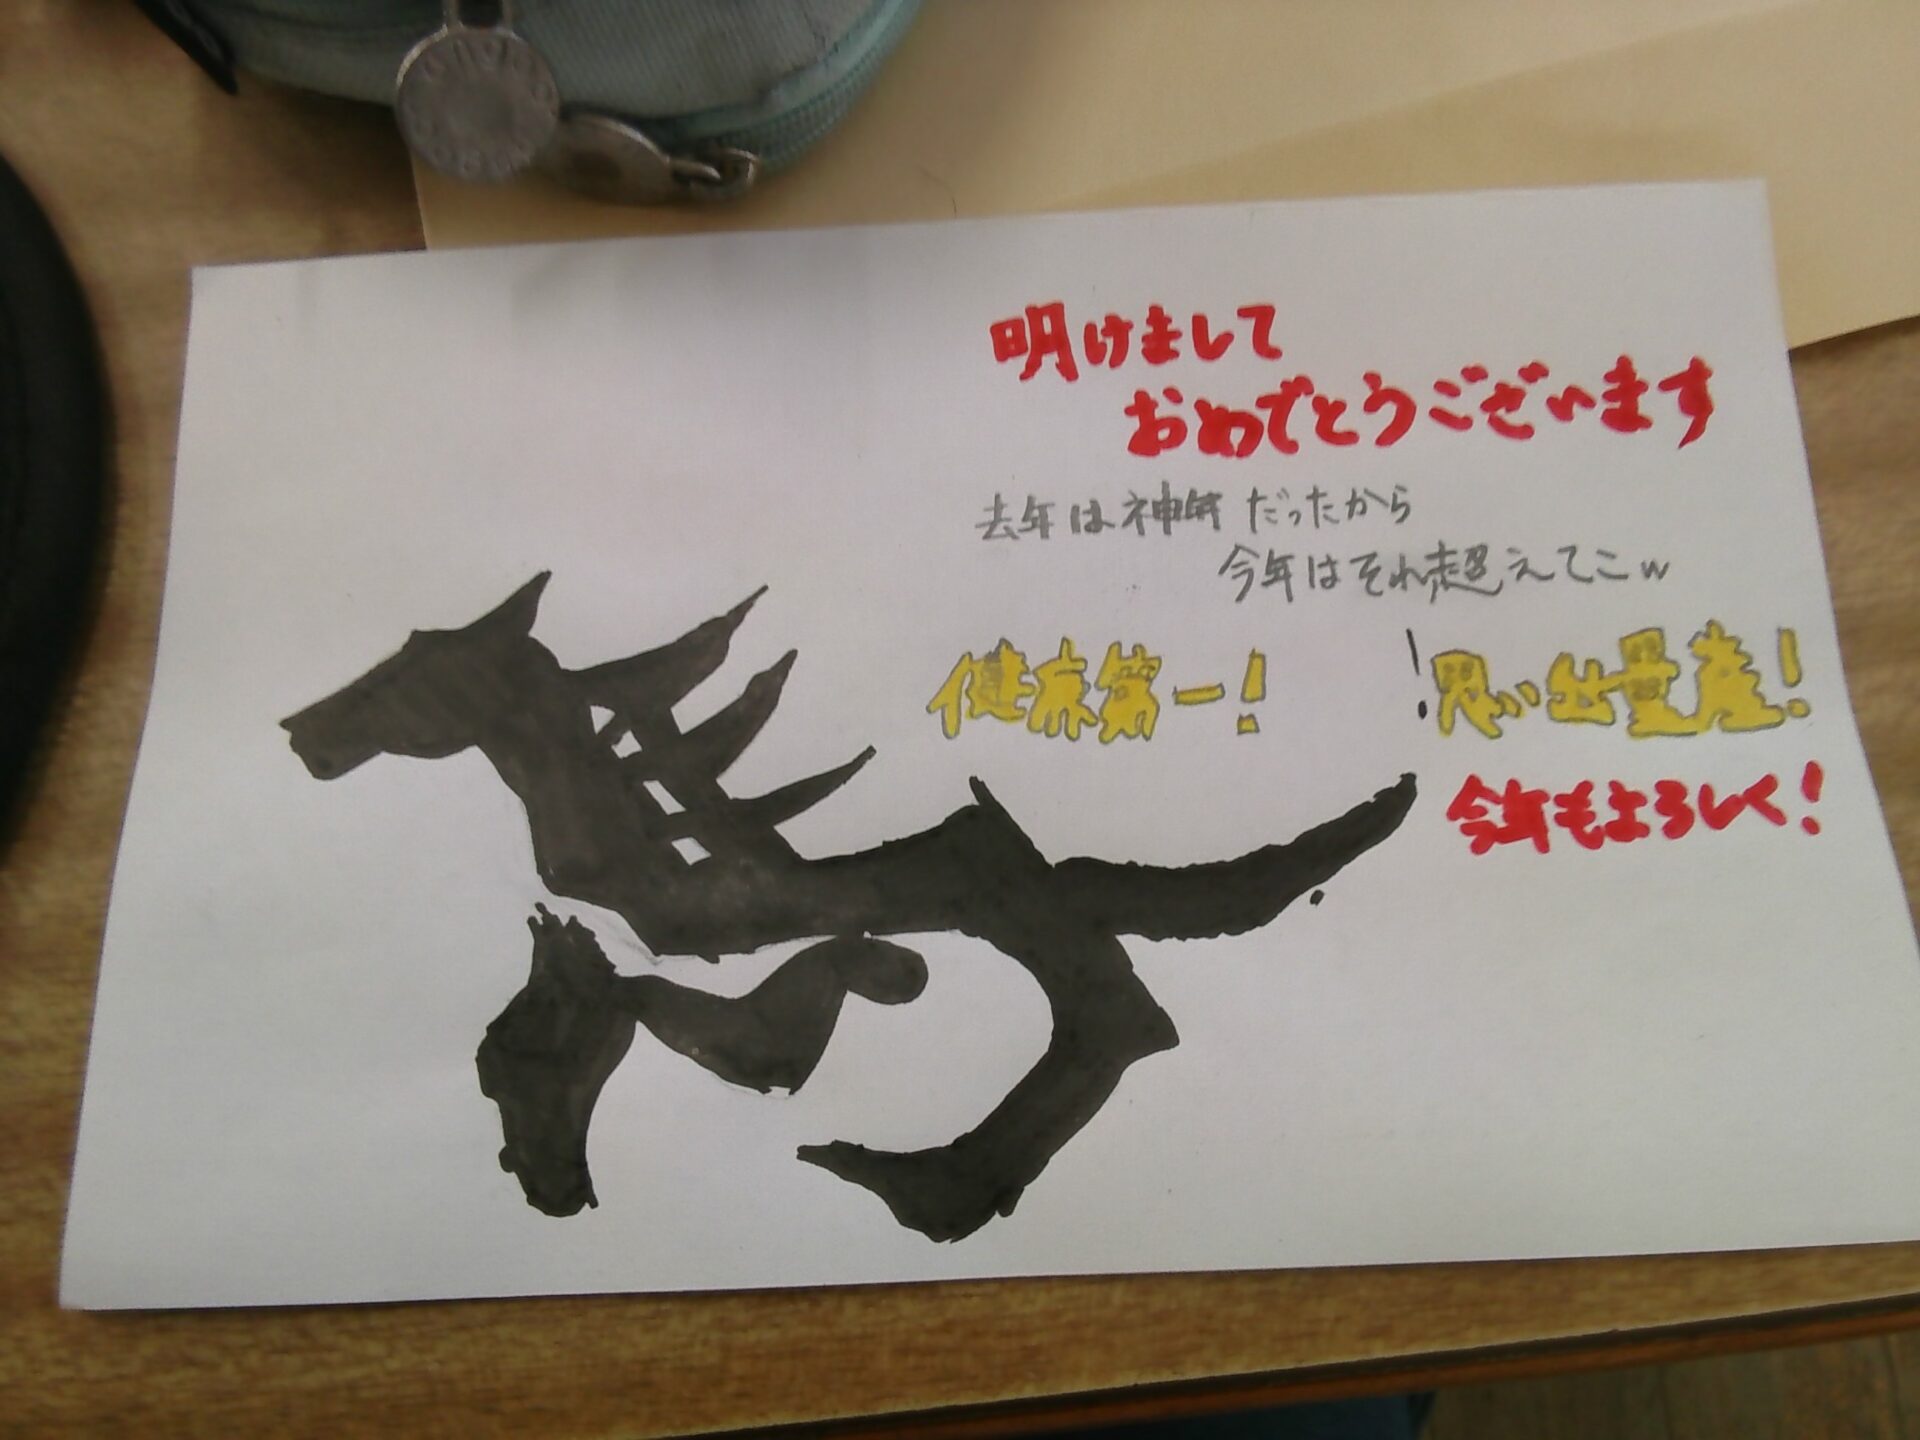 明けまして
おめでとうございます
去年は神年だったから
今年はそれ超えてこw
健康第一! !思い出量産!
今年もよろしく!